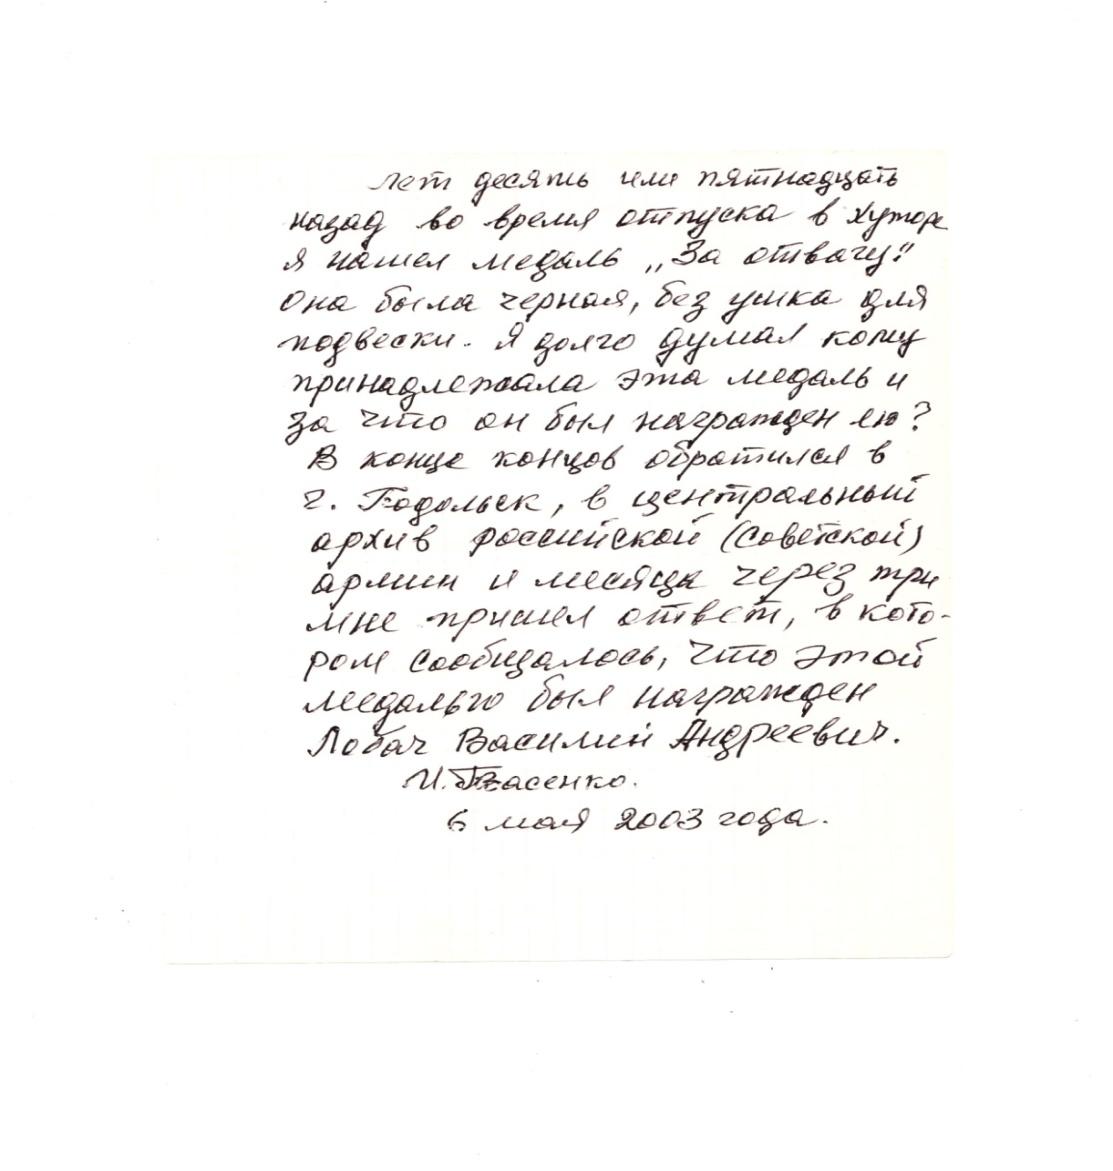 Лет десять или пятнадцать
назад во время отпуска в хуторе
я нашел медаль „За отвагу".
Она была черная, без ушка для
подвески. Я долго думал кому
принадлежала эта медаль и
за что он был награжден ею?
В конце концов обратился в
г. Подольск, в центральный
архив российской (советской)
армии и месяца через три
мне пришел ответ, в кото-
ром сообщалось, что этой
медалью был награжден
Лобач Василий Андреевич.
И.
6 мая 2003 года.